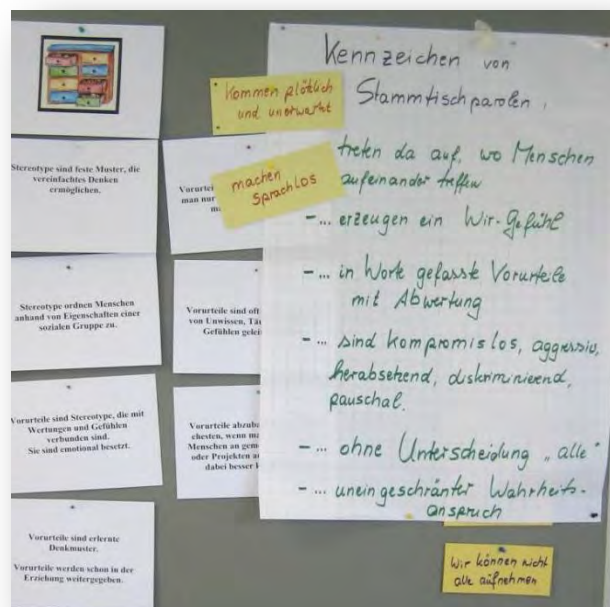 Stereotype sind feste Muster, die
vereinfachtes Denken
ermöglichen.
Stereotype ordnen Menschen
anhand von Eigenschaften einer
sozialen Gruppe zu.
Vorurteile sind Stereotype, die mit
Wertungen und Gefühlen
verbunden sind.
Sie sind emotional besetzt.
Vorurteile sind erlernte
Denkmuster.
Vorurteile werden schon in der
Erziehung weitergegeben.
man nur
Vorurteile sind oft
von Unwissen,
Gefühlen
Vorurteile
wenn
Menschen an
oder Projekten
dabei besser
Kommen plötzlich
und unerwartet
machen
Sprachlos
Kennzeichen von
Stammtischparolen,
treten da auf, wo Menschen
aufeinander treffen
-... erzeugen ein Wir-Gefühl
-... in Worte gefasste Vorurteile
mit Abwertung
-... sind kompromislos, aggressiv,
herabsehend, diskriminierend,
pauschal.
-... ohne Unterscheidung "alle"
-... uneingeschränter Wahrheits-
anspruch
Wir können nicht
alle aufnehmen